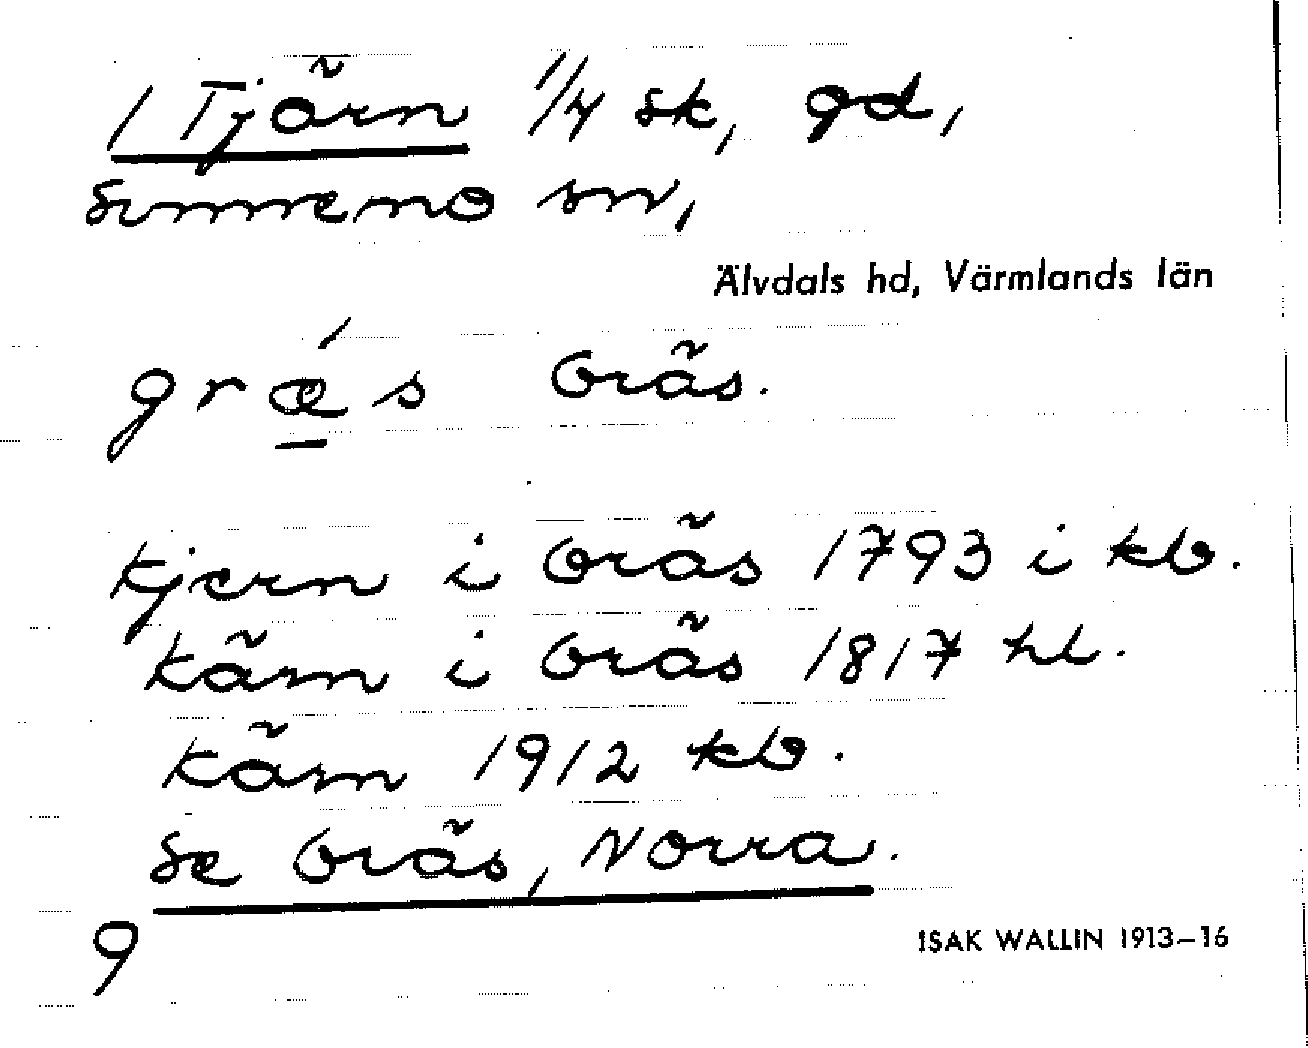 1 Tjärn 1/4 sk, gd,
Sunnemo sn,
Älvdals hd, Värmlands län
græ´s Gräs.
Kjern i Gräs 1793 i kb.
Kärn i Gräs 1817 hl.
Kärn 1912 kb.
Se Gräs, Norra.
9
ISAK WALLIN 1913–16